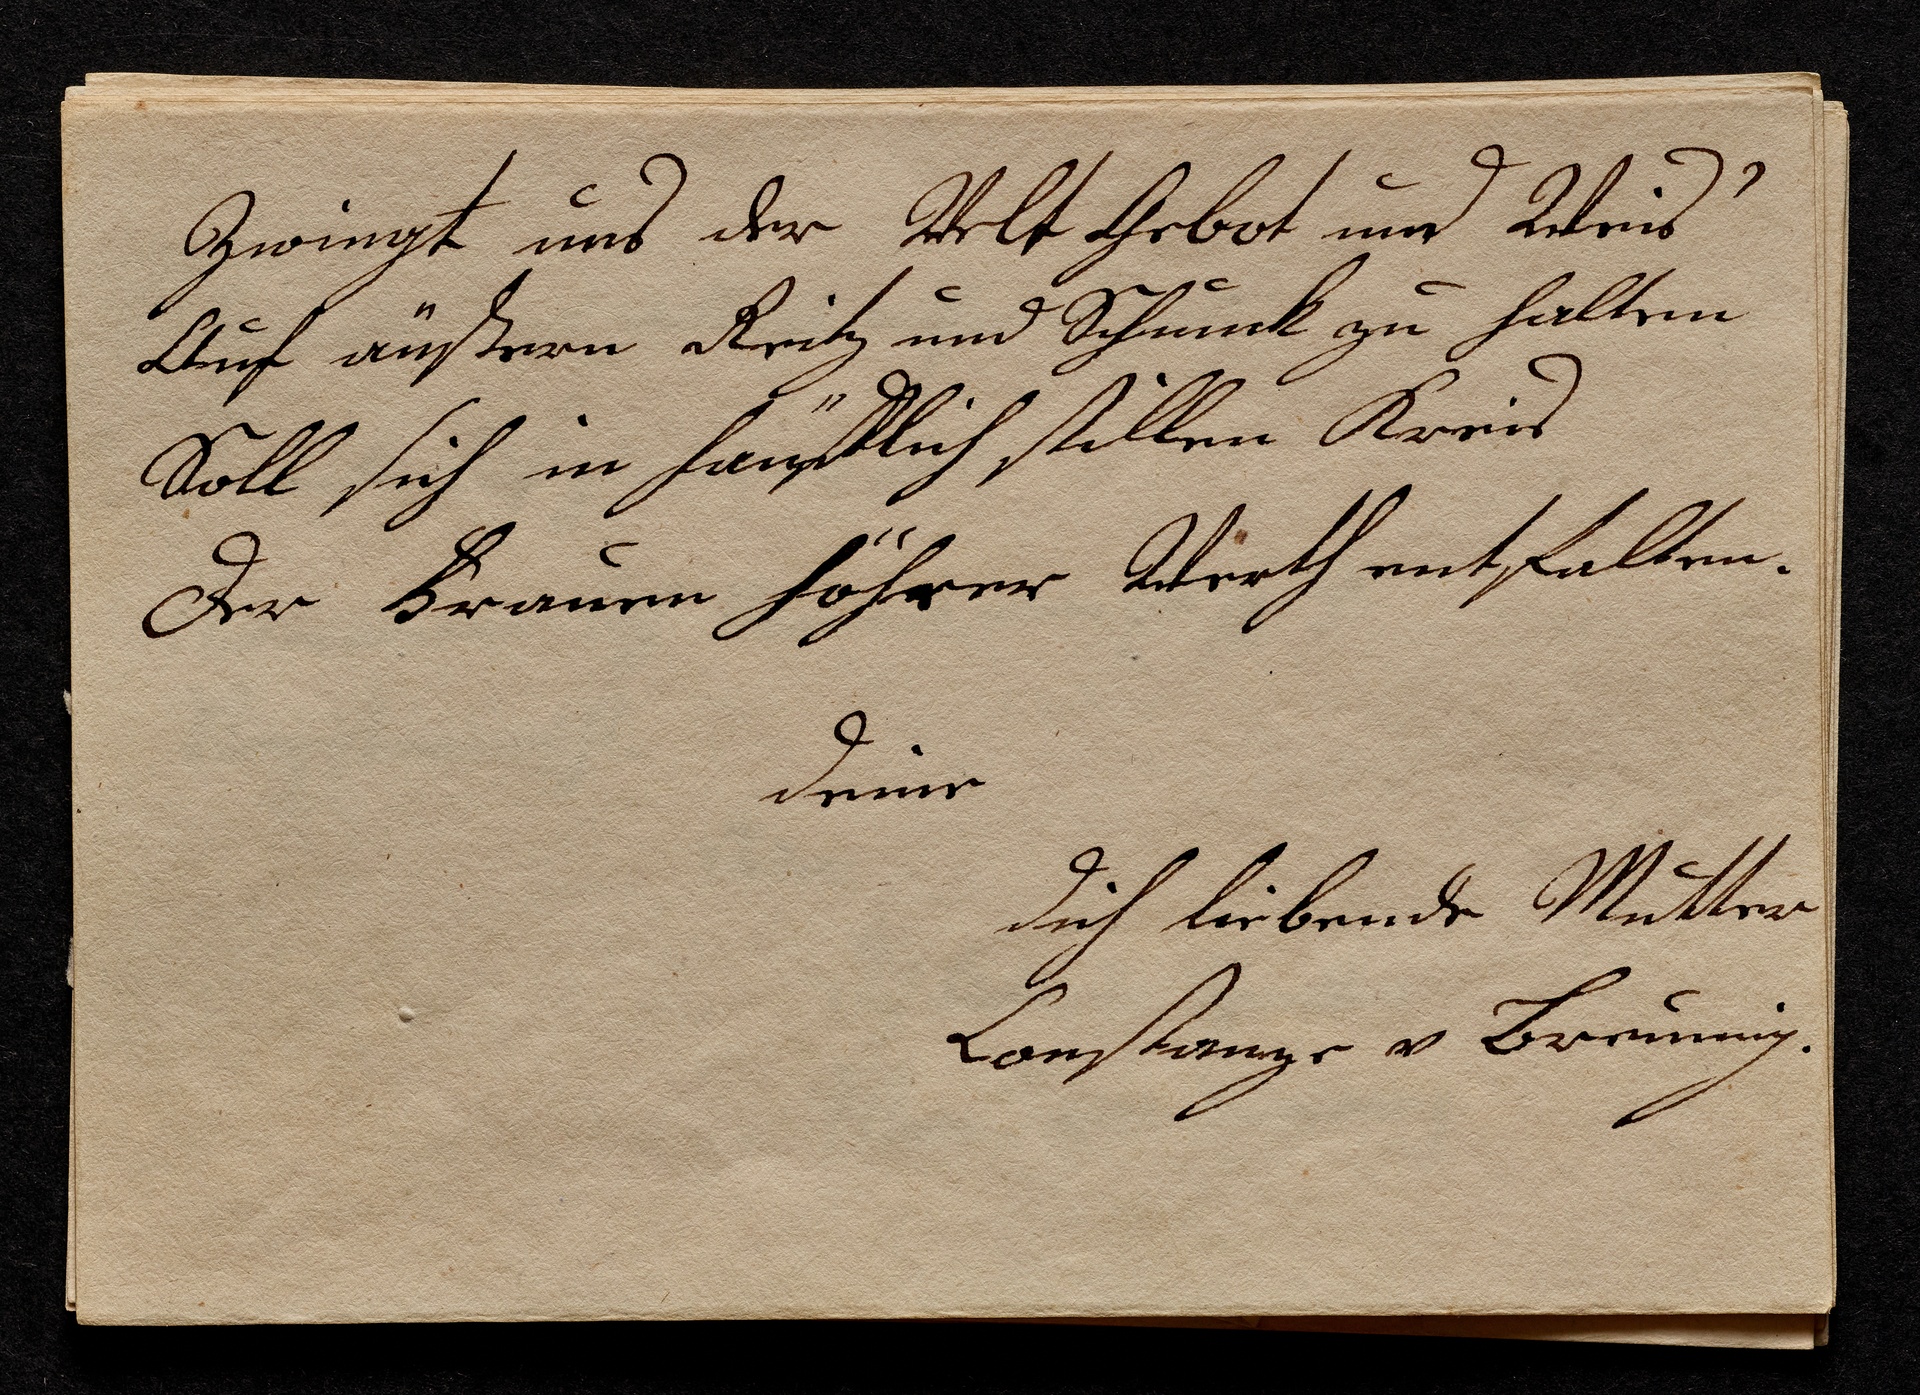 Zwingt uns der Welt Gebot und Weis'
Auf äußern Reitz und Schmuck zu halten
Soll sich in häußlich stillen Kreis
Der Frauen höhrer Werth entfalten.
deine
dich liebende Mutter
Constanze v Breuning.